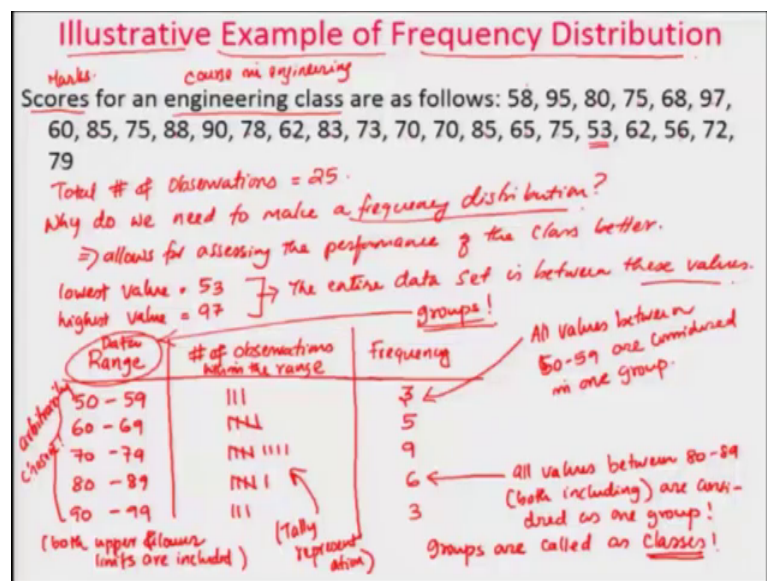 Illustrative Example of Frequency Distribution
Marks. course in engineering
Scores for an engineering class are as follows: 58, 95, 80, 75, 68, 97,
60, 85, 75, 88, 90, 78, 62, 83, 73, 70, 70, 85, 65, 75, 53, 62, 56, 72,
79
Total # of observations = 25.
Why do we need to make a frequency distribution?
⇒ allows for assessing the performance of the class better.
lowest value = 53
highest value = 97
The entire data set is between these values.
groups!
Data Range # of observations within the range Frequency
50 - 59 ||| 3
60 - 69 5
70 - 79 |||| 9
80 - 89 | 6
90 - 99 ||| 3
arbitrarily chosen!
(both upper & lower
limits are included)
(Tally
represent
ation)
All values between
50-59 are considered
in one group.
all values between 80-89
(both including) are consi-
dred as one group!
groups are called as classes!